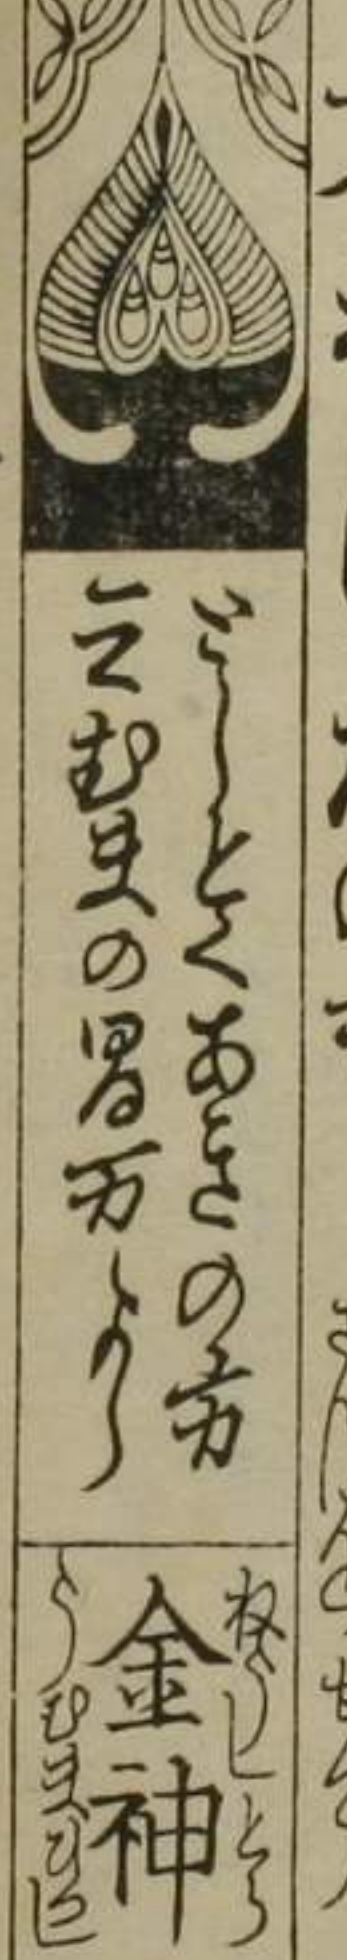 としとくあきの方
みむまの間万よし
ねうしとら
金神
うむまひつじ